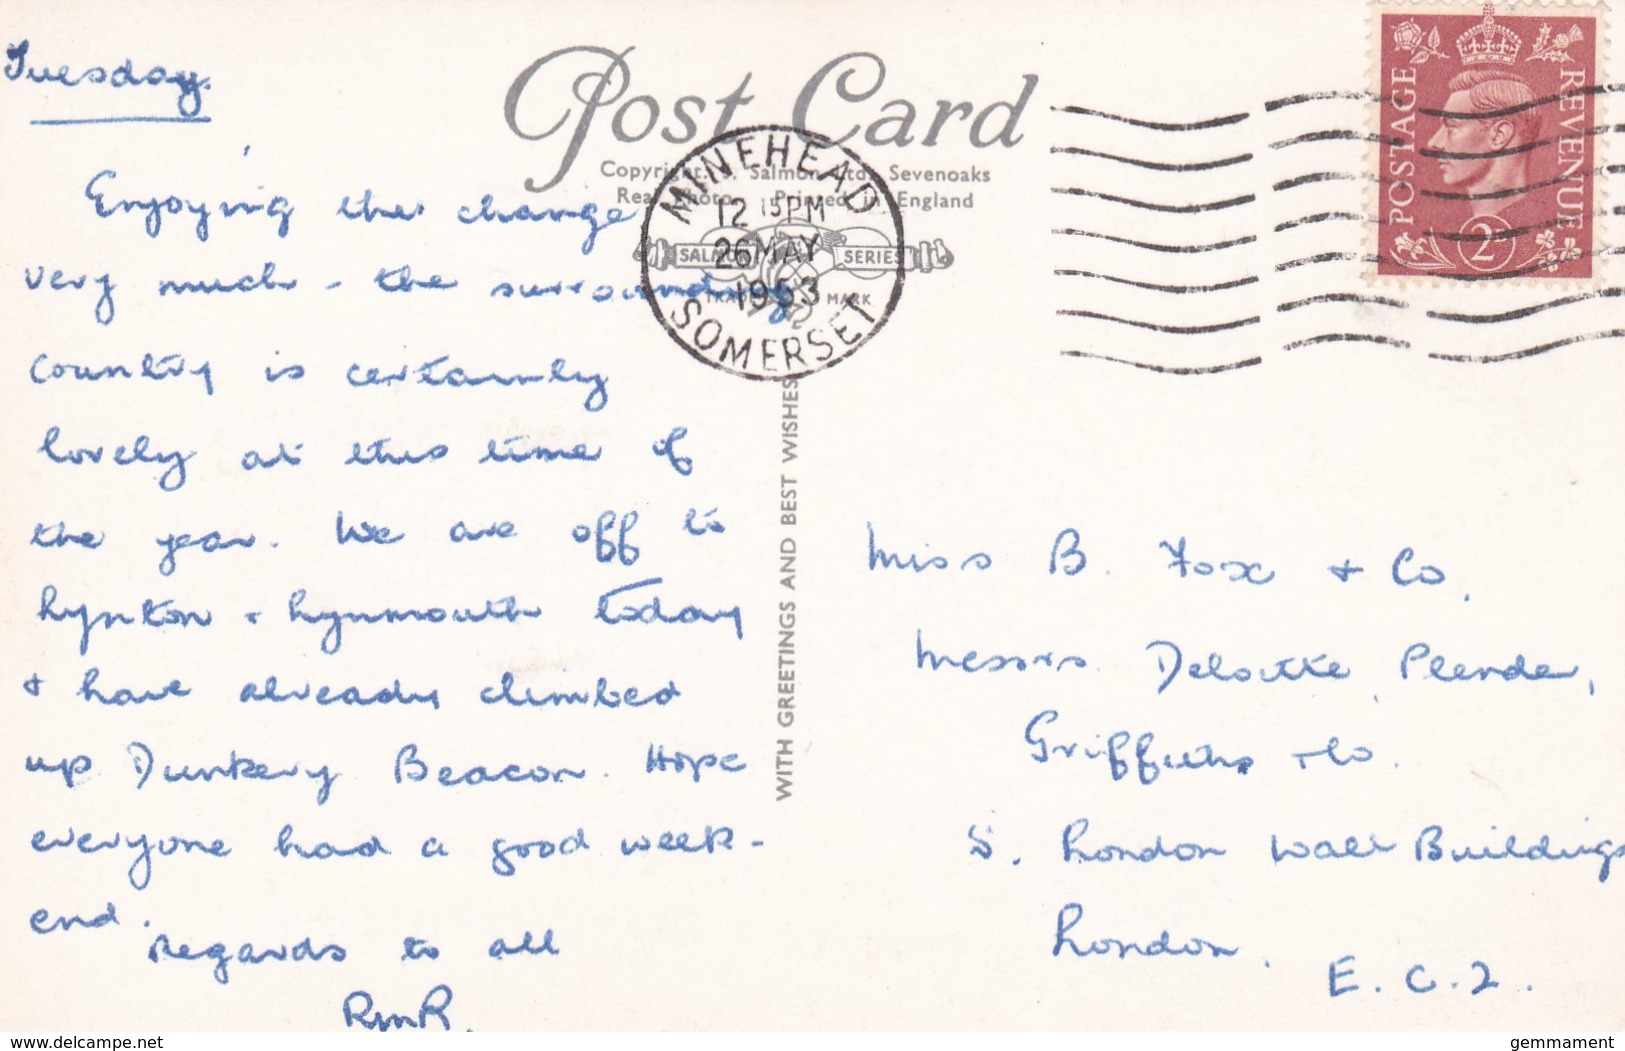 Tuesday.
Enjoying the change
very much - the surrounding
country is certainly
lovely at this time of
the year. We are off to
Lynton + Lynmouth today
+ have already climbed
up Dunkery Beacon. Hope
everyone had a good week-
end.
Regards to all
RMR.
Post Card
Copyright J. Salmon Ltd., Sevenoaks
Real Photo Printed in England
SALMON SERIES
TRADE MARK
MINEHEAD
12 15 PM
26 MAY
1953
SOMERSET
WITH GREETINGS AND BEST WISHES
POSTAGE REVENUE
2D
Miss B. Fox + Co.
Messrs. Deloitte, Plender,
Griffiths + Co.
5. London Wall Buildings
London.
E.C.2.
www.delcampe.net
gemmament